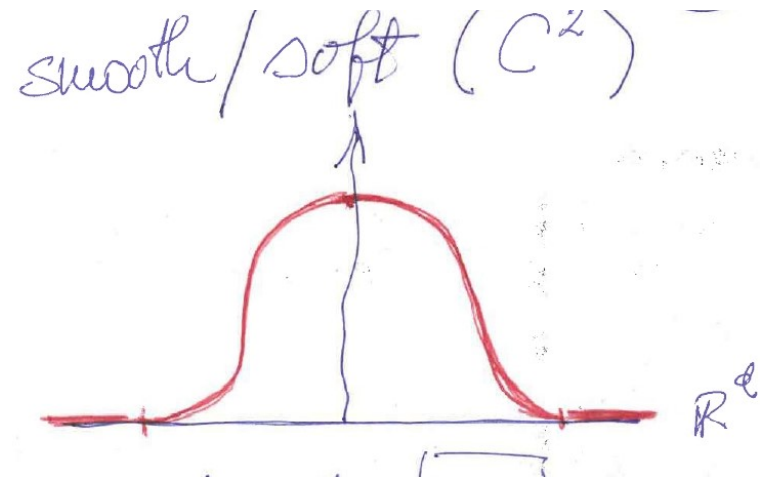 smooth/soft (C²)
ℝᵈ